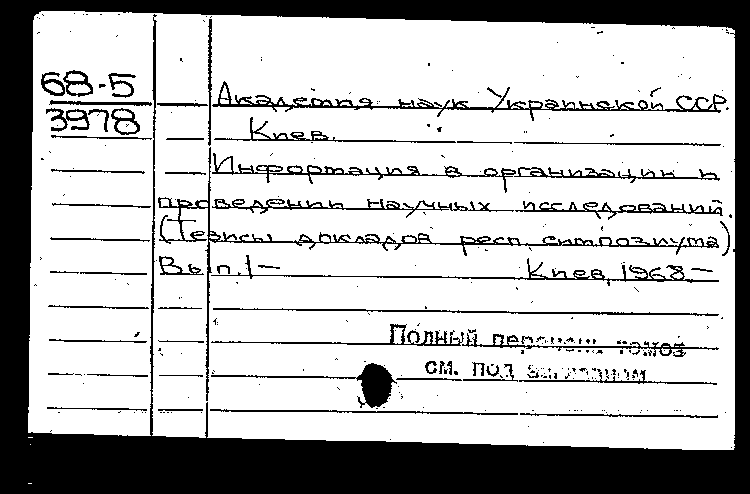 68-5
3978
Академия наук Украинской ССР.
Киев.
Информация в организации и
проведении научных исследований.
(Тезисы докладов респ. симпозиума).
Вып. 1- Киев, 1968-
Полный перечень томов
см. под заглавием